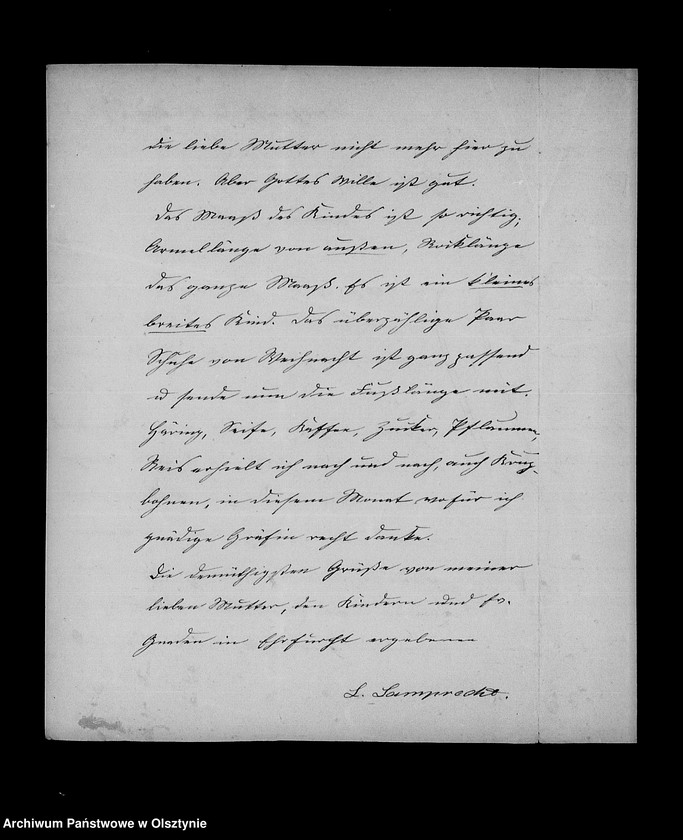 die liebe Mutter nicht mehr hier zu
haben. Aber Gottes Wille ist gut.
Das Maaß des Kindes ist so richtig,
Armellänge von außen, Rocklänge
das ganze Maaß. Es ist ein kleines
breites Kind. Das überzählige Paar
Schuhe von Weihnacht ist ganz passend
u sende nun die Fußlänge mit.
Häring, Seife, Kaffee, Zucker, Pflaumen,
Reis erhielt ich nach und nach, auch
bohnen, in diesem Monat wofür ich
gnädige Gräfin recht danke.
Die demüthigsten Grüße von meiner
lieben Mutter, den Kindern und Ew.
Gnaden in Ehrfurcht ergebenen
L. Lamprecht.
Archiwum Państwowe w Olsztynie